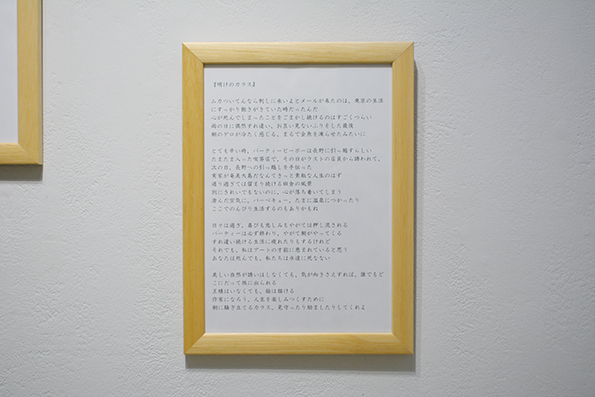 『明けのカラス』
ムカついてんなら刺しに来いよとメールが来たのは、東京の生活
にすっかり飽きがきていた時だったんだ
心が死んでしまったことをごまかし続けるのはすごくつらい
雨の日に偶然すれ違い、お互い見ないふりをした最後
朝のアロが冷たく感じる、まるで金魚を凍らせたみたいに
とても辛い時、パーティーピーポーは長野に引っ越すらしい
たまたま入った喫茶店で、その日がラストの店員から誘われて、
次の日、長野への引っ越しを手伝った
実家が奄美大島だなんてきっと素敵な人生のはず
通り過ぎては留まり続ける田舎の風景
別にきれいでもないのに、心が落ち着いてしまう
澄んだ空気に、バーベキュー、たまに温泉につかったり
ここでのんびり生活するのもありかもね
日々は過ぎ、喜びも悲しみもやがては押し流される
パーティーは必ず終わり、やがて朝がやってくる
すれ違い続ける生活に疲れたりもするけれど
それでも、私はアートの才能に恵まれていると思う
あなたは死んでも、私たちは永遠に死なない
美しい自然が誘いはしなくても、気が向きさえすれば、誰でもど
こにだって旅に出られる
王様はいなくても、絵は描ける
作家になろう、人生を楽しみつくすために
朝に騒ぎ立てるカラス、見守ったり励ましたりしてくれよ